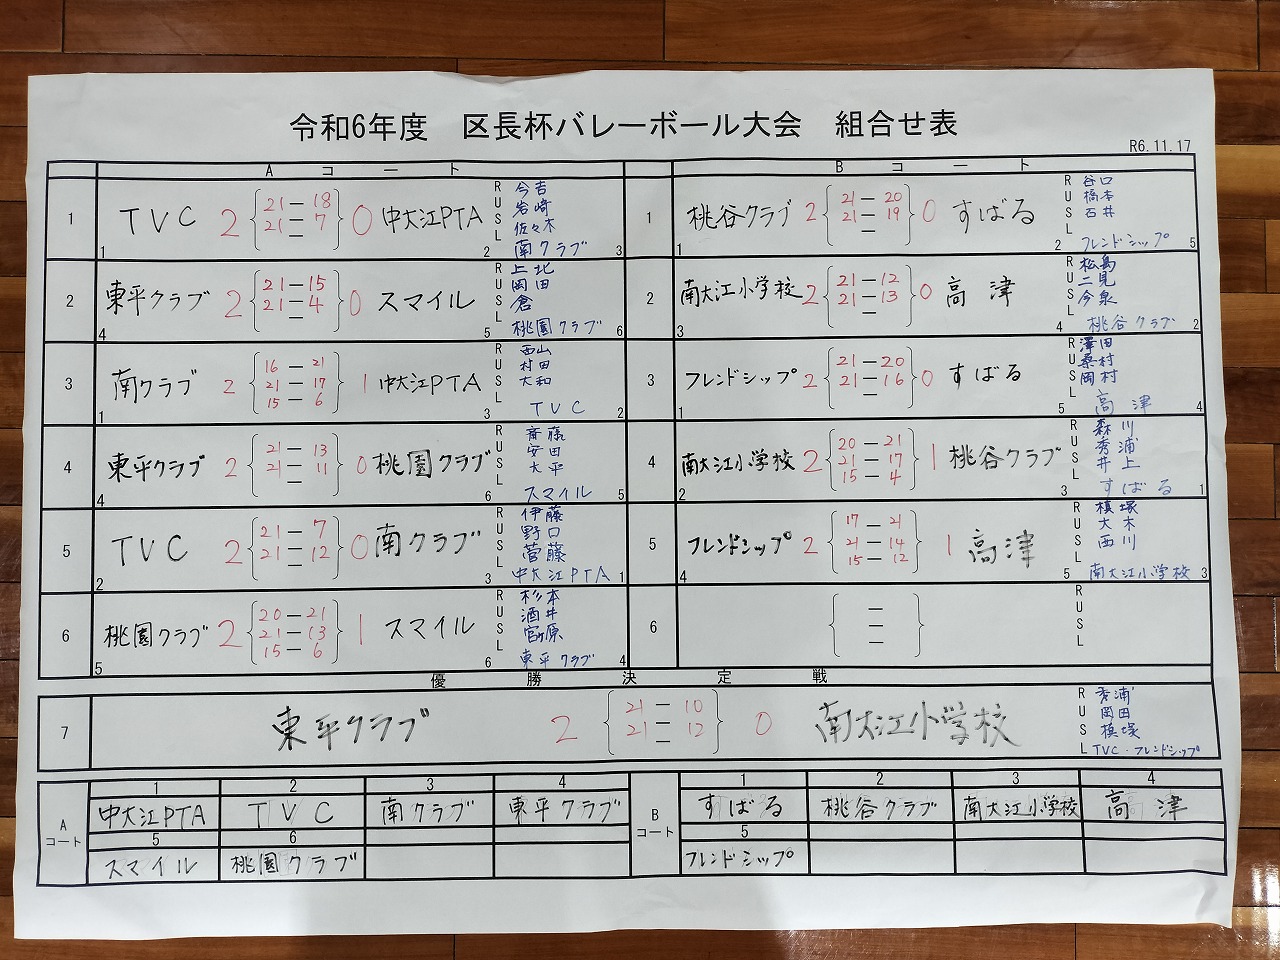 令和6年度 区長杯バレーボール大会 組合せ表
R6.11.17
Aコート Bコート
1 TVC 2 21-18 21-7 - 0 中大江PTA 1 2 R U S L 今吉 岩崎 佐々木 南クラブ 3
1 桃谷クラブ 2 21-20 21-19 - 0 すばる 1 2 R U S L 谷口 橋本 石井 フレンドシップ 5
2 東平クラブ 2 21-15 21-4 - 0 スマイル 4 5 R U S L 上北 岡田 倉 桃園クラブ 6
2 南大江小学校 2 21-12 21-13 - 0 高津 3 4 R U S L 松島 二見 今泉 桃谷クラブ 2
3 南クラブ 2 16-21 21-17 15-6 1 中大江PTA 1 3 R U S L 西山 村田 大和 TVC 2
3 フレンドシップ 2 21-20 21-16 - 0 すばる 1 5 R U S L 澤田 桑村 岡村 高津 4
4 東平クラブ 2 21-13 21-11 - 0 桃園クラブ 4 6 R U S L 斎藤 安田 大平 スマイル 5
4 南大江小学校 2 20-21 21-17 15-4 1 桃谷クラブ 2 3 R U S L 森川 秀浦 井上 すばる 1
5 TVC 2 21-7 21-12 - 0 南クラブ 2 3 R U S L 伊藤 野口 菅藤 中大江PTA 1
5 フレンドシップ 2 17-21 21-14 15-12 1 高津 4 5 R U S L 槙塚 大木 西川 南大江小学校 3
6 桃園クラブ 2 20-21 21-13 15-6 1 スマイル 5 6 R U S L 杉本 酒井 宮ヶ原 東平クラブ 4
6 - - - R U S L
優勝決定戦
7 東平クラブ 2 21-10 21-12 - 0 南大江小学校 R U S L 秀浦 岡田 槙塚 TVC・フレンドシップ
Aコート 1 2 3 4 Bコート 1 2 3 4
中大江PTA TVC 南クラブ 東平クラブ すばる 桃谷クラブ 南大江小学校 高津
5 6 5
スマイル 桃園クラブ フレンドシップ